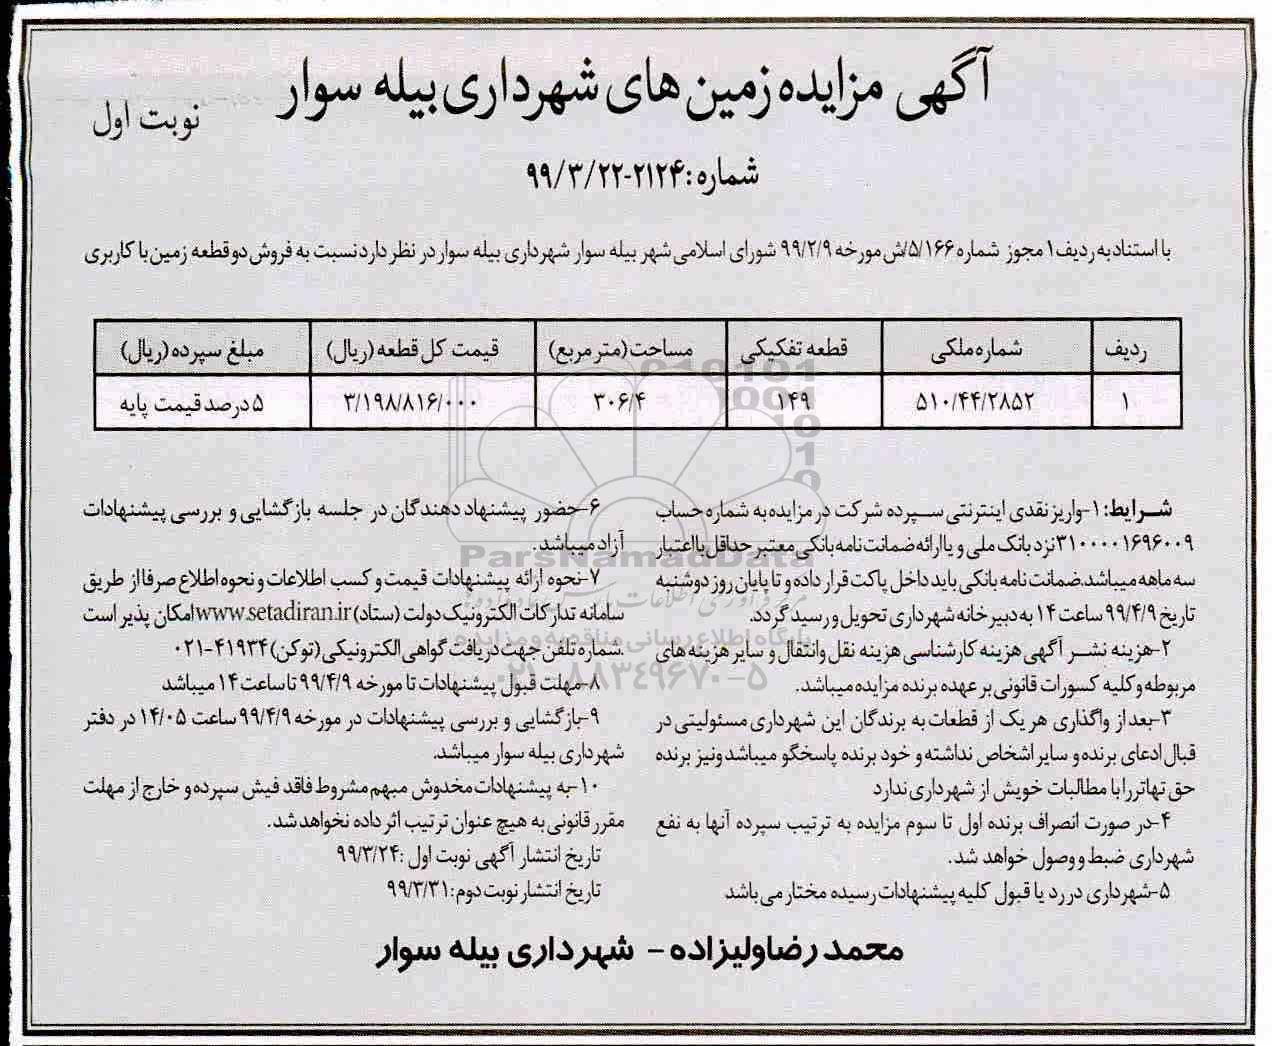 آگهی مزایده زمین های شهرداری بیله سوار
نوبت اول
شماره: ۲۱۲۴-۹۹/۳/۲۲
با استناد به ردیف ۱ مجوز شماره ۵/۱۶۶/ش مورخه ۹۹/۲/۹ شورای اسلامی شهر بیله سوار شهرداری بیله سوار در نظر دارد نسبت به فروش دو قطعه زمین با کاربری
ردیف شماره ملکی قطعه تفکیکی مساحت (متر مربع) قیمت کل قطعه (ریال) مبلغ سپرده (ریال)
۱ ۵۱۰/۴۴/۲۸۵۲ ۱۴۹ ۳۰۶/۴ ۳/۱۹۸/۸۱۶/۰۰۰ ۵ درصد قیمت پایه
شرایط: ۱-واریز نقدی اینترنتی سپرده شرکت در مزایده به شماره حساب
۳۱۰۰۰۰۱۶۹۶۰۰۹ نزد بانک ملی و یا ارائه ضمانت نامه بانکی معتبر حداقل با اعتبار
سه ماهه میباشد. ضمانت نامه بانکی باید داخل پاکت قرار داده و تا پایان روز دوشنبه
تاریخ ۹۹/۴/۹ ساعت ۱۴ به دبیرخانه شهرداری تحویل و رسید گردد.
۲-هزینه نشر آگهی هزینه کارشناسی هزینه نقل وانتقال و سایر هزینه های
مربوطه و کلیه کسورات قانونی بر عهده برنده مزایده میباشد.
۳-بعد از واگذاری هر یک از قطعات به برندگان این شهرداری مسئولیتی در
قبال ادعای برنده و سایر اشخاص نداشته و خود برنده پاسخگو میباشد ونیز برنده
حق تهاتر را با مطالبات خویش از شهرداری ندارد
۴-در صورت انصراف برنده اول تا سوم مزایده به ترتیب سپرده آنها به نفع
شهرداری ضبط و وصول خواهد شد.
۵-شهرداری در رد یا قبول کلیه پیشنهادات رسیده مختار می باشد
۶-حضور پیشنهاد دهندگان در جلسه بازگشایی و بررسی پیشنهادات
آزاد میباشد.
۷-نحوه ارائه پیشنهادات قیمت و کسب اطلاعات و نحوه اطلاع صرفا از طریق
سامانه تدارکات الکترونیک دولت (ستاد) www.setadiran.ir امکان پذیر است
.شماره تلفن جهت دریافت گواهی الکترونیکی (توکن) ۴۱۹۳۴-۰۲۱
۸-مهلت قبول پیشنهادات تا مورخه ۹۹/۴/۹ تا ساعت ۱۴ میباشد
۹-بازگشایی و بررسی پیشنهادات در مورخه ۹۹/۴/۹ ساعت ۱۴/۰۵ در دفتر
شهرداری بیله سوار میباشد.
۱۰-به پیشنهادات مخدوش مبهم مشروط فاقد فیش سپرده و خارج از مهلت
مقرر قانونی به هیچ عنوان ترتیب اثر داده نخواهد شد.
تاریخ انتشار آگهی نوبت اول :۹۹/۳/۲۴
تاریخ انتشار نوبت دوم:۹۹/۳/۳۱
محمد رضا ولیزاده - شهرداری بیله سوار
ParsNamadData
پایگاه اطلاع رسانی مناقصه و مزایده
۰۲۱-۸۸۳۴۹۶۷۰-۵